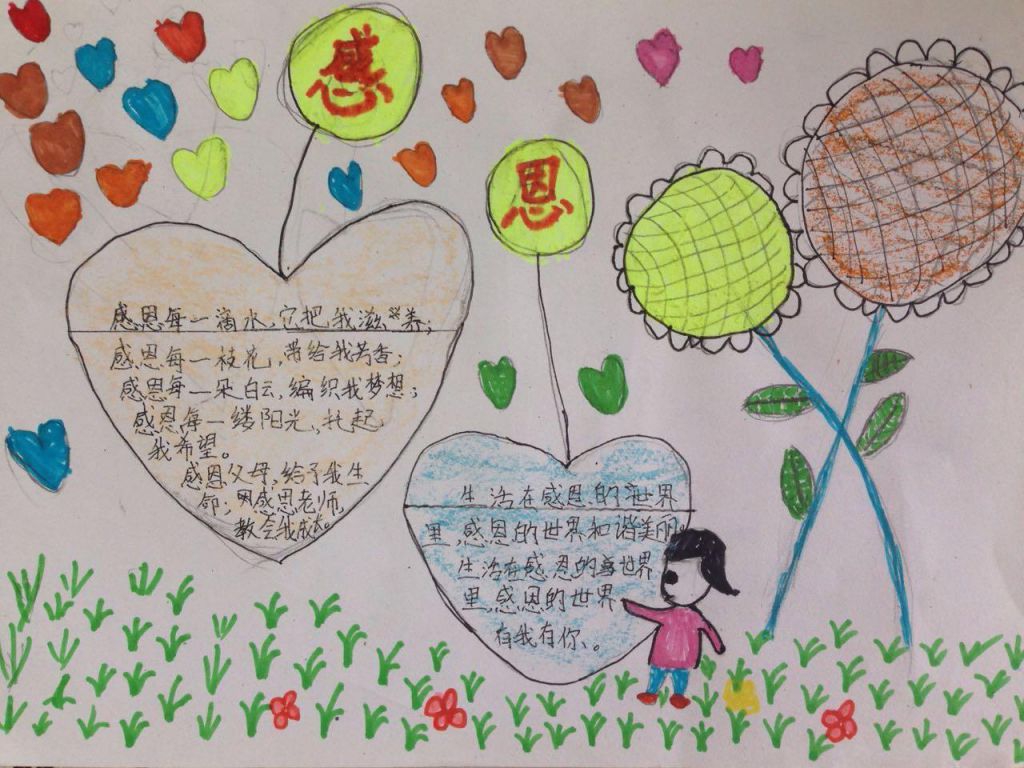 感
恩
感恩每一滴水,它把我滋养;
感恩每一枝花,带给我芳香;
感恩每一朵白云,编织我梦想;
感恩每一缕阳光,托起
我希望。
感恩父母,给予我生
命;感恩老师,
教会我成长。
生活在感恩的世界
里,感恩的世界和谐美丽。
生活在感恩的世界
里,感恩的世界
有我有你。